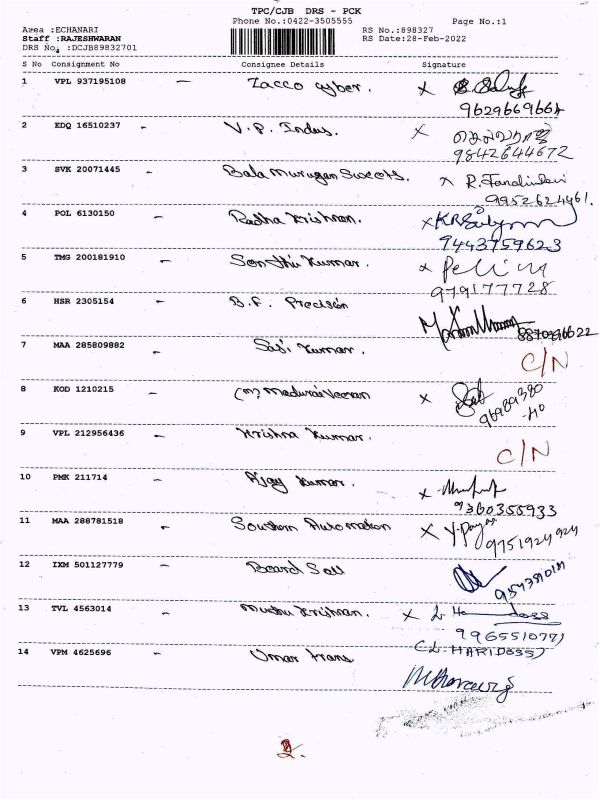 TPC/CJB DRS - PCK
Phone No.:0422-3505555 Page No.:1
Area :ECHANARI RS No.:898327
Staff :RAJESHWARAN RS Date:28-Feb-2022
DRS No. :DCJB89832701
S No Consignment No Consignee Details Signature
1 VPL 937195108 - Zacco cyber. x
9629669664
2 EDQ 16510237 - V. P. Indus. x
9842644672
3 SVK 20071445 - Bala Murugan Sweets. x
9952624461.
4 POL 6130150 - Radha Krishnan. x
9443759623
5 TMG 200181910 - Senthil Kumar. x
979177728
6 HSR 2305154 - B. F. Precision
7 MAA 285809882 - Sasi Kumar. C/N
8 KOD 1210215 - (M) Maduraiveeran x
9 VPL 212956436 - Krishna Kumar. C/N
10 PMK 211714 - Ajay Kumar. x
9360355933
11 MAA 288781518 - Southern Automation x
9751924924
12 IXM 501127779 -
13 TVL 4563014 - Muthu Krishnan. x
(L. HARIDOSS)
14 VPM 4625696 - Umar trans